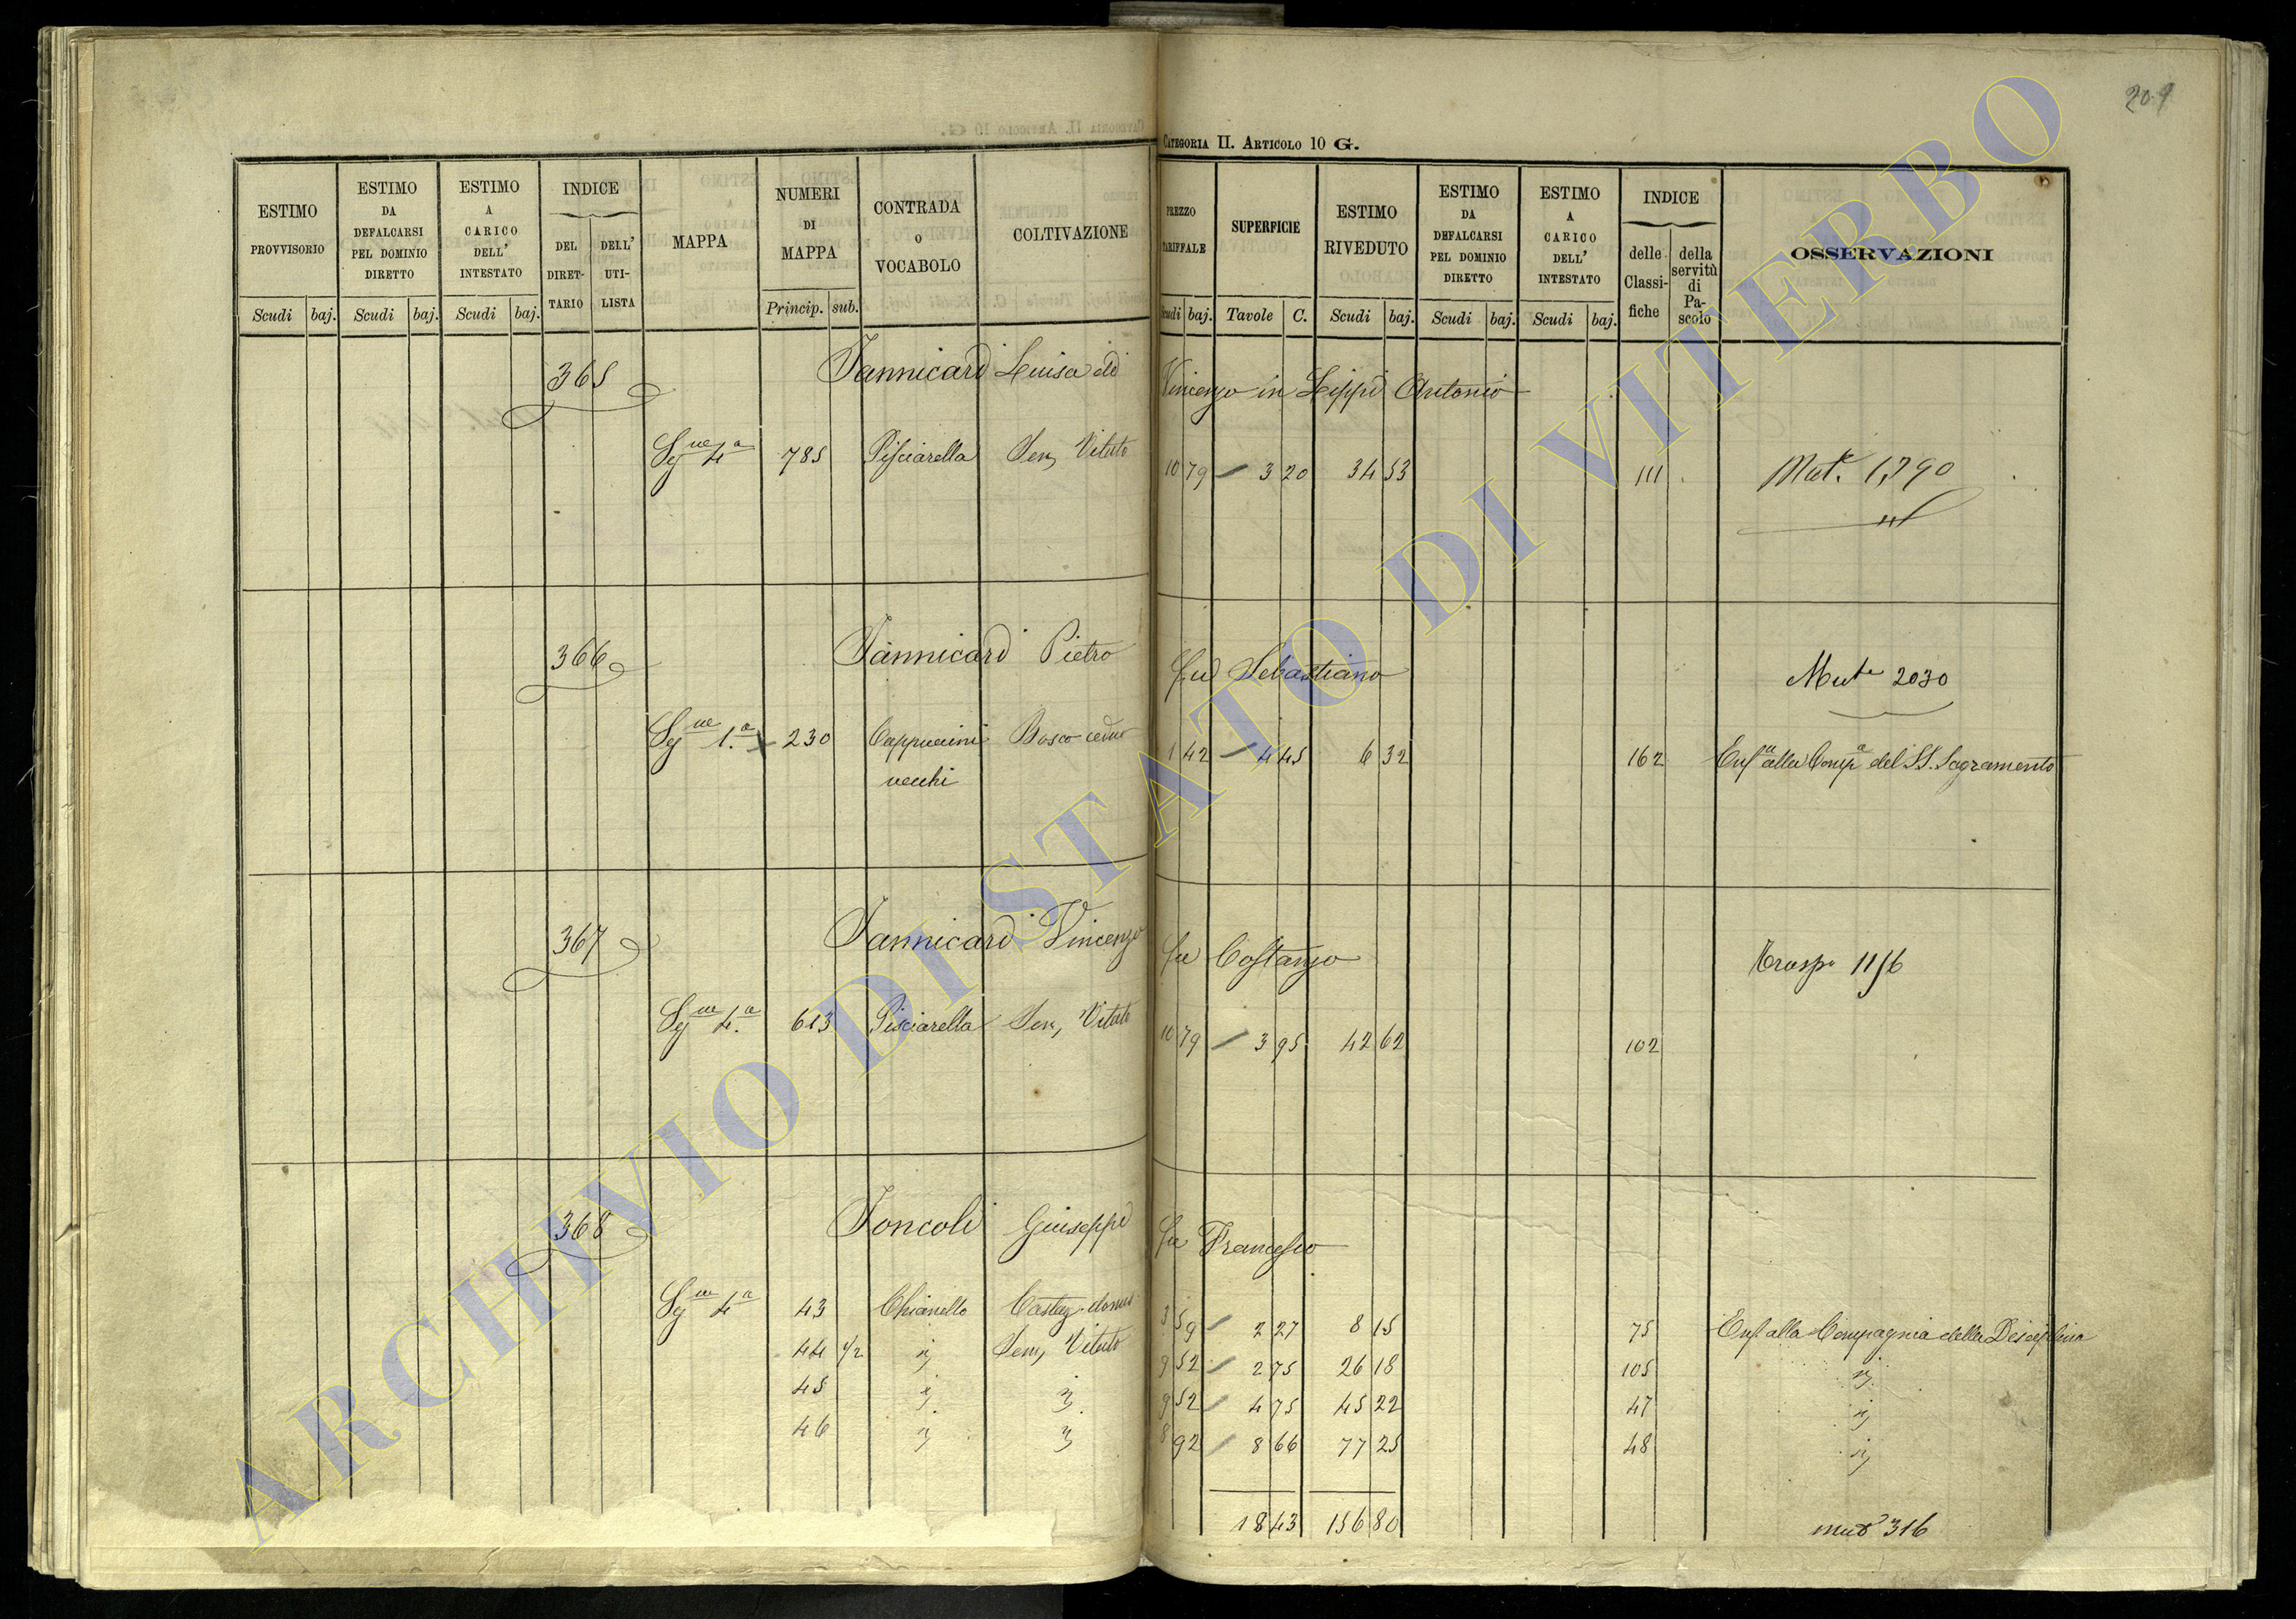 209
CATEGORIA II. ARTICOLO 10 G.
ESTIMO PROVVISORIO
ESTIMO DA DEFALCARSI PEL DOMINIO DIRETTO
ESTIMO A CARICO DELL' INTESTATO
INDICE
DEL DIRET-TARIO
DELL' UTI-LISTA
MAPPA
NUMERI DI MAPPA
CONTRADA O VOCABOLO
COLTIVAZIONE
PREZZO TARIFFALE
SUPERFICIE
ESTIMO RIVEDUTO
ESTIMO DA DEFALCARSI PEL DOMINIO DIRETTO
ESTIMO A CARICO DELL' INTESTATO
INDICE
delle Classi-fiche
della servitù di Pa-scolo
OSSERVAZIONI
Scudi baj. Scudi baj. Scudi baj. Princip. sub. Scudi baj. Tavole C. Scudi baj. Scudi baj. Scudi baj.
365 Jannicari Luisa di Vincenzo in Lippi Antonio
Segne 4a 785 Pisciarella Sem, Vitato 10 79 3 20 34 53 111 Mut. 1,790
366 Jannicari Pietro fu Sebastiano Mute 2030
Segne 1.a 230 Cappuccini vecchi Bosco ceduo 1 42 4 45 6 32 162 Enfa alla Compa del SS. Sagramento
367 Jannicari Vincenzo fu Costanzo Trasp. 1156
Segne 4.a 613 Pisciarella Sem, Vitato 10 79 3 95 42 62 102
368 Joncoli Giuseppe fu Francesco
Segne 4a 43 Chianello Castag. domes 3 59 2 27 8 15 75 Enf alla Compagnia della Disciplina
44 1/2 " Sem, Vitato 9 52 2 75 26 18 105 "
45 " " 9 52 4 75 45 22 47 "
46 " " 8 92 8 66 77 25 48 "
18 43 156 80 mut 316
ARCHIVIO DI STATO DI VITERBO